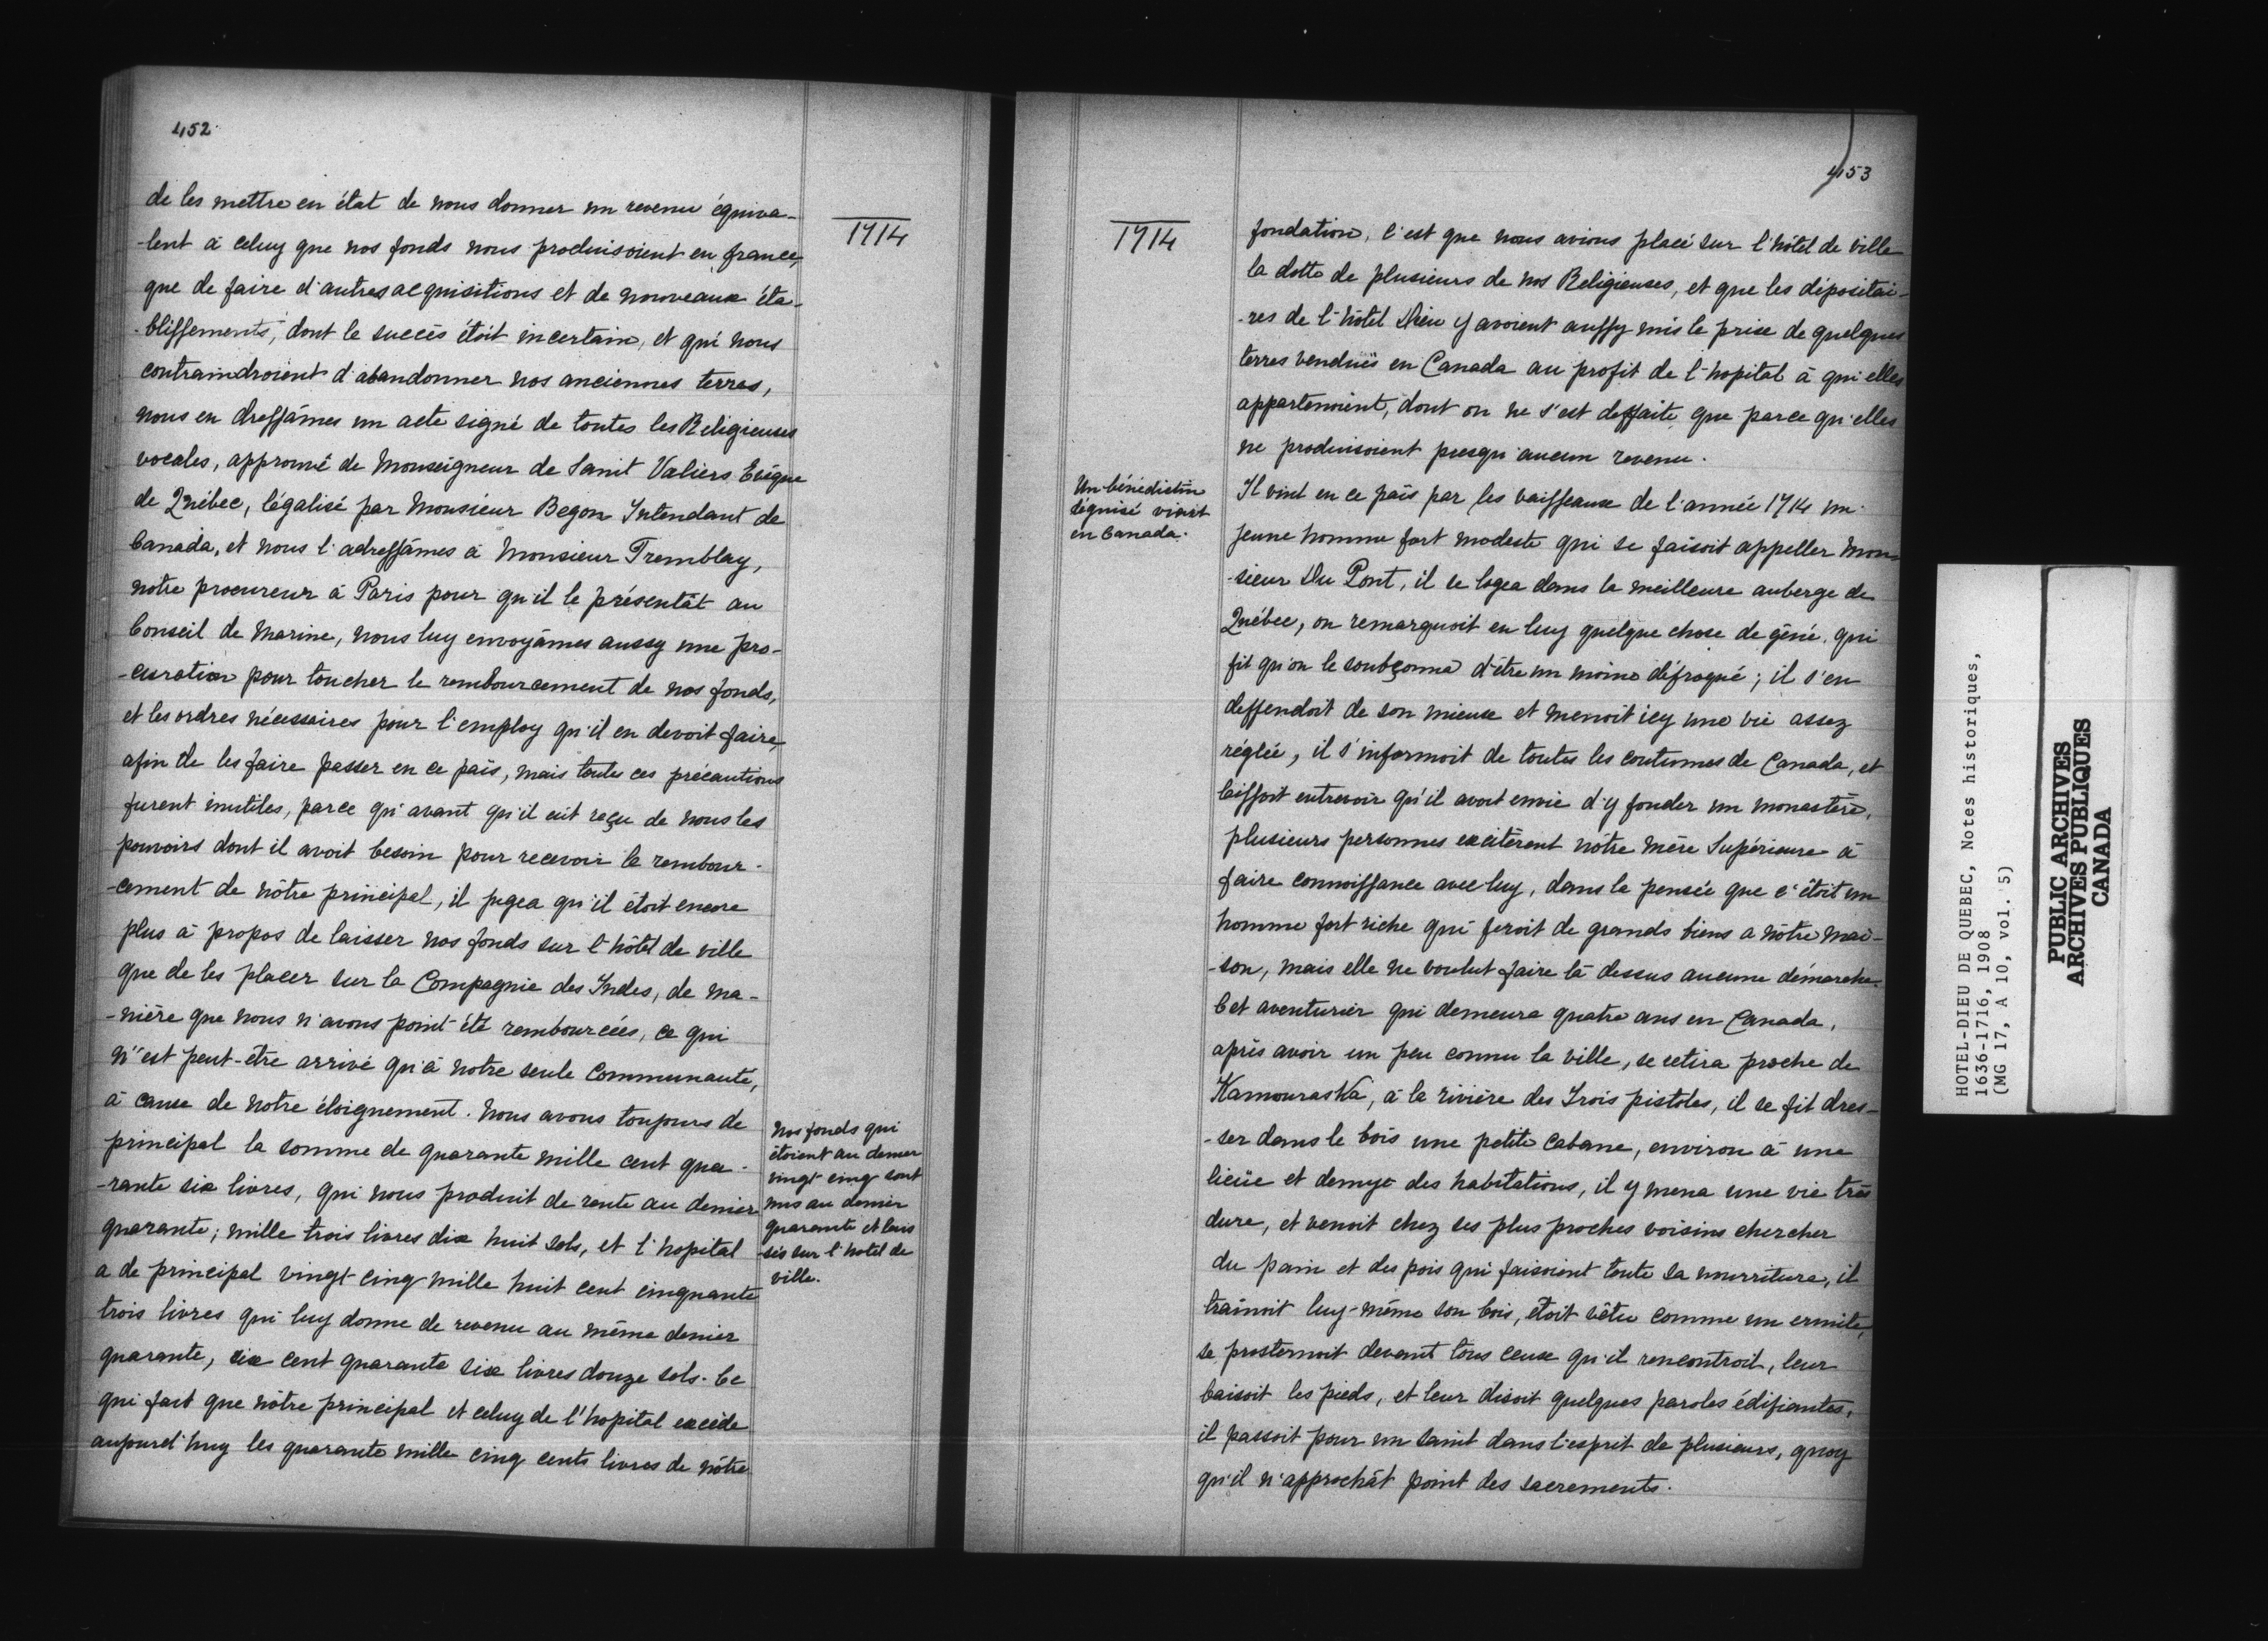 452
1714
de les mettre en état de nous donner un revenu équiva-
-lent à celuy que nos fonds nous produisoient en france,
que de faire d'autres acquisitions et de nouveaux éta-
-blissements, dont le succés étoit incertain, et qui nous
contraindroient d'abandonner nos anciennes terres,
nous en dressâmes un acte signé de toutes les Religieuses
vocales, approuvé de Monseigneur de Saint Valiers Evêque
de Québec, légalisé par Monsieur Begon Intendant de
Canada, et nous l'adressâmes à Monsieur Tremblay,
notre procureur à Paris pour qu'il le présentât au
Conseil de Marine, nous luy envoyâmes aussy une pro-
-curation pour toucher le rembourcement de nos fonds,
et les ordres nécessaires pour l'employ qu'il en devoit faire,
afin de les faire passer en ce païs, mais toutes ces précautions
furent inutiles, parce qu'avant qu'il eut reçu de nous les
pouvoirs dont il avoit besoin pour recevoir le rembour-
-cement de nôtre principal, il jugea qu'il étoit encore
plus à propos de laisser nos fonds sur l'hôtel de ville
que de les placer sur la Compagnie des Indes, de ma-
-nière que nous n'avons point été rembourcées, ce qui
n'est peut-être arrivé qu'à notre seule Communauté,
à cause de notre éloignement. Nous avons toujours de
principal la somme de quarante mille cent qua-
-rante six livres, qui nous produit de rente au denier
quarante; mille trois livres dix huit sols, et l'hopital
a de principal vingt cinq mille huit cent cinquante
trois livres qui luy donne de revenu au même denier
quarante, six cent quarante six livres douze sols. Ce
qui fait que nôtre principal et celuy de l'hopital excède
aujourd'huy les quarante mille cinq cents livres de nôtre
Nos fonds qui
étoient au denier
vingt cinq sont
mis au denier
quarante et lais
-sés sur l'hotel de
ville.
453
1714
fondation, c'est que nous avions placé sur l'hôtel de ville
la dotte de plusieurs de nos Religieuses, et que les dépositai-
-res de l'hôtel Dieu y avoient aussy mis le prix de quelques
terres venduës en Canada au profit de l'hopital à qui elles
appartenoient, dont on ne s'est deffaite que parce qu'elles
ne produisoient presqu'aucun revenu.
Un bénédictin
déguisé vient
en Canada.
Il vint en ce païs par les vaisseaux de l'année 1714 un
jeune homme fort modeste qui se faisoit appeller Mon-
-sieur Du Pont, il se logea dans la meilleure auberge de
Québec, on remarquoit en luy quelque chose de gêné, qui
fit qu'on le soubçonna d'être un moine défroqué; il s'en
deffendoit de son mieux et menoit icy une vie assez
réglée, il s'informoit de toutes les coutumes de Canada, et
laissoit entrevoir qu'il avoit envie d'y fonder un monastère,
plusieurs personnes excitèrent nôtre mère Supérieure à
faire connoissance avec luy, dans la pensée que c'étoit un
homme fort riche qui feroit de grands biens a nôtre mai-
-son, mais elle ne voulut faire là dessus aucune démarche.
Cet aventurier qui demeura quatre ans en Canada,
après avoir un peu connu la ville, se retira proche de
Kamouraska, à la rivière des Trois pistoles, il se fit dres-
-ser dans le bois une petite cabane, environ à une
lieüe et demye des habitations, il y mena une vie très
dure, et venoit chez ses plus proches voisins chercher
du pain et des pois qui faisoient toute sa nourriture, il
traînoit luy-même son bois, étoit vêtu comme un ermite,
se prosternoit devant tous ceux qu'il rencontroit, leur
baisoit les pieds, et leur disoit quelques paroles édifiantes,
il passoit pour un saint dans l'esprit de plusieurs, quoy
qu'il n'approchât point des sacrements.
HOTEL-DIEU DE QUEBEC, Notes historiques,
1636-1716, 1908
(MG 17, A 10, vol. 5)
PUBLIC ARCHIVES
ARCHIVES PUBLIQUES
CANADA